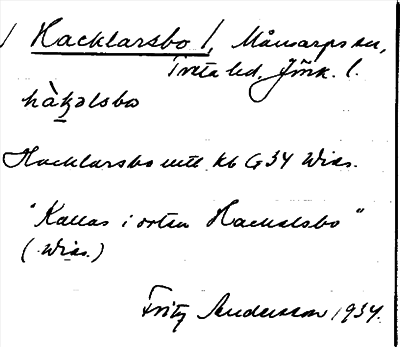 / Hacklarsbo /, Månsarps sn,
Tveta hd, Jönk. l.
hàk̠əlsbo
Hacklarsbo utt kb G 34 Wiss.
"Kallas i orten Hackelsbo"
(Wiss.)
Fritz Andersson 1934.